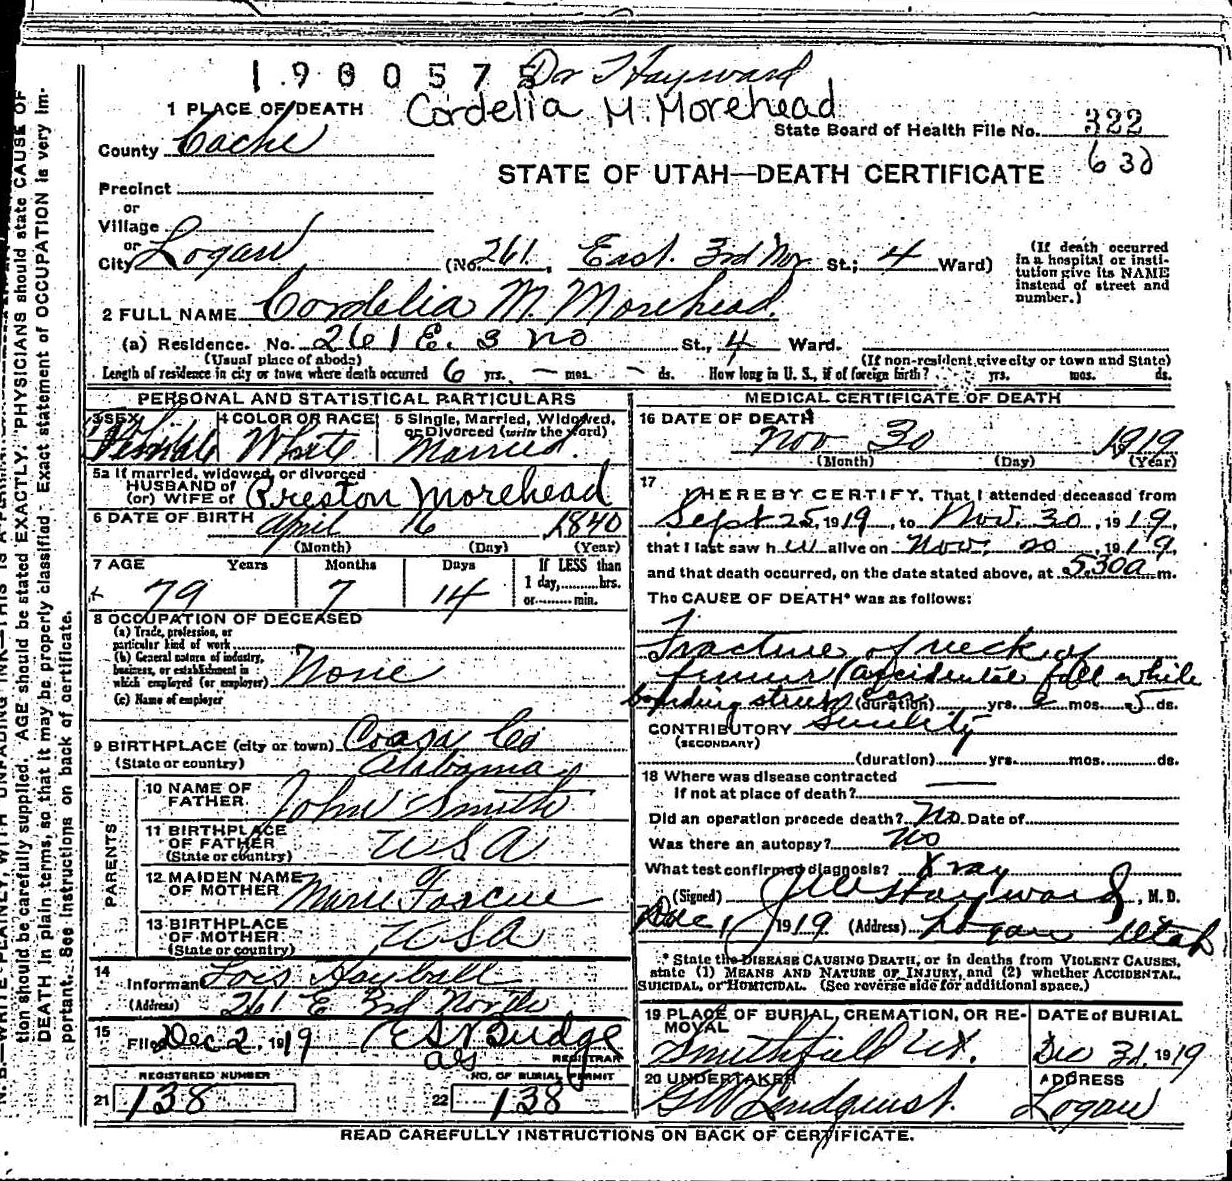 1900575 Dr Hayward
Cordelia M. Morehead
1 PLACE OF DEATH
County Cache
State Board of Health File No. 322
630
STATE OF UTAH—DEATH CERTIFICATE
Precinct
or
Village
or
City Logan (No. 261, East 3rd Nor St.; 4 Ward)
(If death occurred
in a hospital or insti-
tution give its NAME
instead of street and
number.)
2 FULL NAME Cordelia M. Morehead.
(a) Residence. No. 261 E. 3 No St., 4 Ward.
(Usual place of abode) (If non-resident give city or town and State)
Length of residence in city or town where death occurred 6 yrs. — mos. — ds. How long in U. S., if of foreign birth? yrs. mos. ds.
PERSONAL AND STATISTICAL PARTICULARS
3 SEX Female
4 COLOR OR RACE White
5 Single, Married, Widowed,
or Divorced (write the word)
Married.
5a If married, widowed, or divorced
HUSBAND OF
(or) WIFE OF Preston Morehead
6 DATE OF BIRTH April 16 1840
(Month) (Day) (Year)
7 AGE Years Months Days If LESS than
1 day, hrs.
or min.
79 7 14
8 OCCUPATION OF DECEASED
(a) Trade, profession, or
particular kind of work
(b) General nature of industry,
business, or establishment in
which employed (or employer) None
(c) Name of employer
9 BIRTHPLACE (city or town) Coosa Co
(State or country) Alabama
PARENTS
10 NAME OF
FATHER John Smith
11 BIRTHPLACE
OF FATHER
(State or country) USA
12 MAIDEN NAME
OF MOTHER Marie Foscue
13 BIRTHPLACE
OF MOTHER
(State or country) USA
14
Informant Lois Hayball
(Address) 261 E 3rd North
15
Filed Dec 2, 1919 E S Budge
REGISTRAR
REGISTERED NUMBER
21 138
NO. OF BURIAL PERMIT
22 138
MEDICAL CERTIFICATE OF DEATH
16 DATE OF DEATH
Nov 30 1919
(Month) (Day) (Year)
17
I HEREBY CERTIFY, That I attended deceased from
Sept 25, 1919, to Nov. 30, 1919,
that I last saw h alive on Nov. , 1919,
and that death occurred, on the date stated above, at 5.30a m.
The CAUSE OF DEATH* was as follows:
Fracture of neck of
femur (accidental fall while
boarding street car (duration) yrs. 2 mos. 5 ds.
CONTRIBUTORY Senility
(SECONDARY)
(duration) yrs. mos. ds.
18 Where was disease contracted
If not at place of death? —
Did an operation precede death? No Date of
Was there an autopsy? No
What test confirmed diagnosis? Xray
(Signed) Hayward, M. D.
Dec 1, 1919 (Address) Logan Utah
* State the DISEASE CAUSING DEATH, or in deaths from VIOLENT CAUSES,
state (1) MEANS AND NATURE OF INJURY, and (2) whether ACCIDENTAL,
SUICIDAL, or HOMICIDAL. (See reverse side for additional space.)
19 PLACE OF BURIAL, CREMATION, OR RE-
MOVAL
Smithfield Ut.
DATE of BURIAL
Dec 3d. 1919
20 UNDERTAKER
G W Lindquist.
ADDRESS
Logan
READ CAREFULLY INSTRUCTIONS ON BACK OF CERTIFICATE.
tion should be carefully supplied. AGE should be stated EXACTLY. PHYSICIANS should state CAUSE OF
DEATH in plain terms, so that it may be properly classified. Exact statement of OCCUPATION is very im-
portant. See instructions on back of certificate.